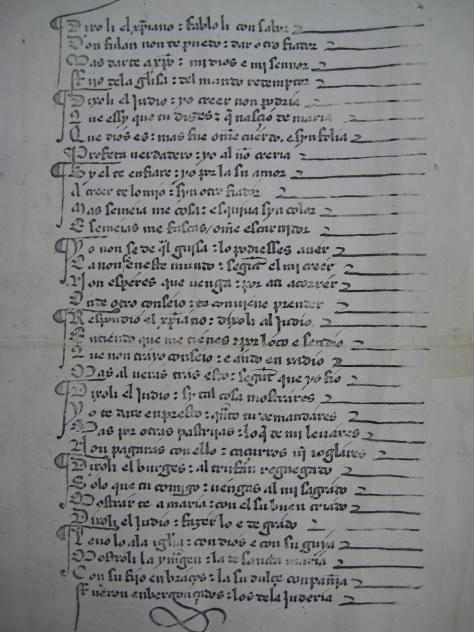 Dixoli el xp̄iano : fabloli con sabor
Don fulan non te puedo : dar otro fiador
Mas darte a xp̄o : mi dios e mi sennor
Fijo dela glīsa : del mundo redemptor
Dixoli el Judio : yo creer non podria
Que essi que tu dizes : q̄ nasçio de maria
Que dios es : mas fue om̄e cuerdo, e syn folia
Profeta verdadero : yo al nō creria
Sy el te enfiare : yo por la su amor
A creer te lo mio : syn otro fiador
Mas semeia me cosa : esquiua syn color
E semeias me fascas / om̄e escarnidor
Yo non se de q̄l guisa : lo podiesses auer
Ca non en este mundo : segūt el mi creer
Non esperes que venga : por ati acorrer
Onde otro conseio : te conuiene prender
Respondio el xp̄iano : dixoli al Judio
Entiendo que me tienes : por loco e sendio
Que non trayo conseio : e ando en radio
Mas al veras tras esto : segūt que yo fio
Dixoli el Judio : sy tal cosa mostrares
Yo te dare enpresto : quāto tu demandares
Mas por otras pastrijas : lo q̄ de mi leuares
Non pagaras con ello : caçurros nī joglares
Dixoli el burges : al trufan renegado
Solo que tu comigo : vengas al mi sagrado
Mostrar te a maria : con el su buen criado
Dixoli el Judio : fazer lo e de grado
Leuolo ala iglīa : con dios e con su guya
Mostroli la ymagen : la de sancta maria
Con su fijo en braços : la su dulçe conpañia
Fueron enbergonçados : los dela Juderia